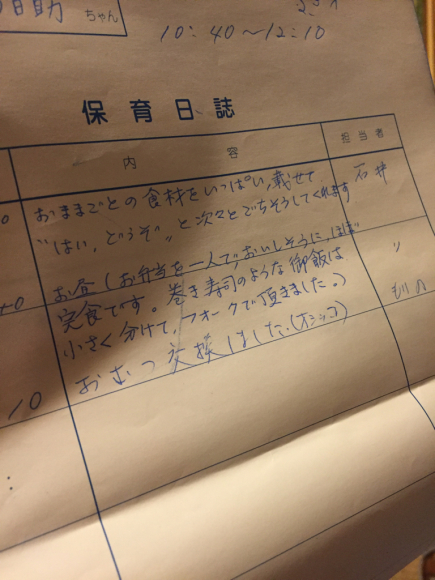 助 ちゃん
10:40〜12:10
保育日誌
内容
担当者
おままごとの食材をいっぱい、載せて
"はい、どうぞ"と次々とごちそうしてくれます
石井
お昼(お弁当を一人で、おいしそうに、ほぼ
完食です。巻き寿司のような御飯は
小さく分けて、フォークで頂きました。)
〃
10
おむつ交換しました。(オシッコ)